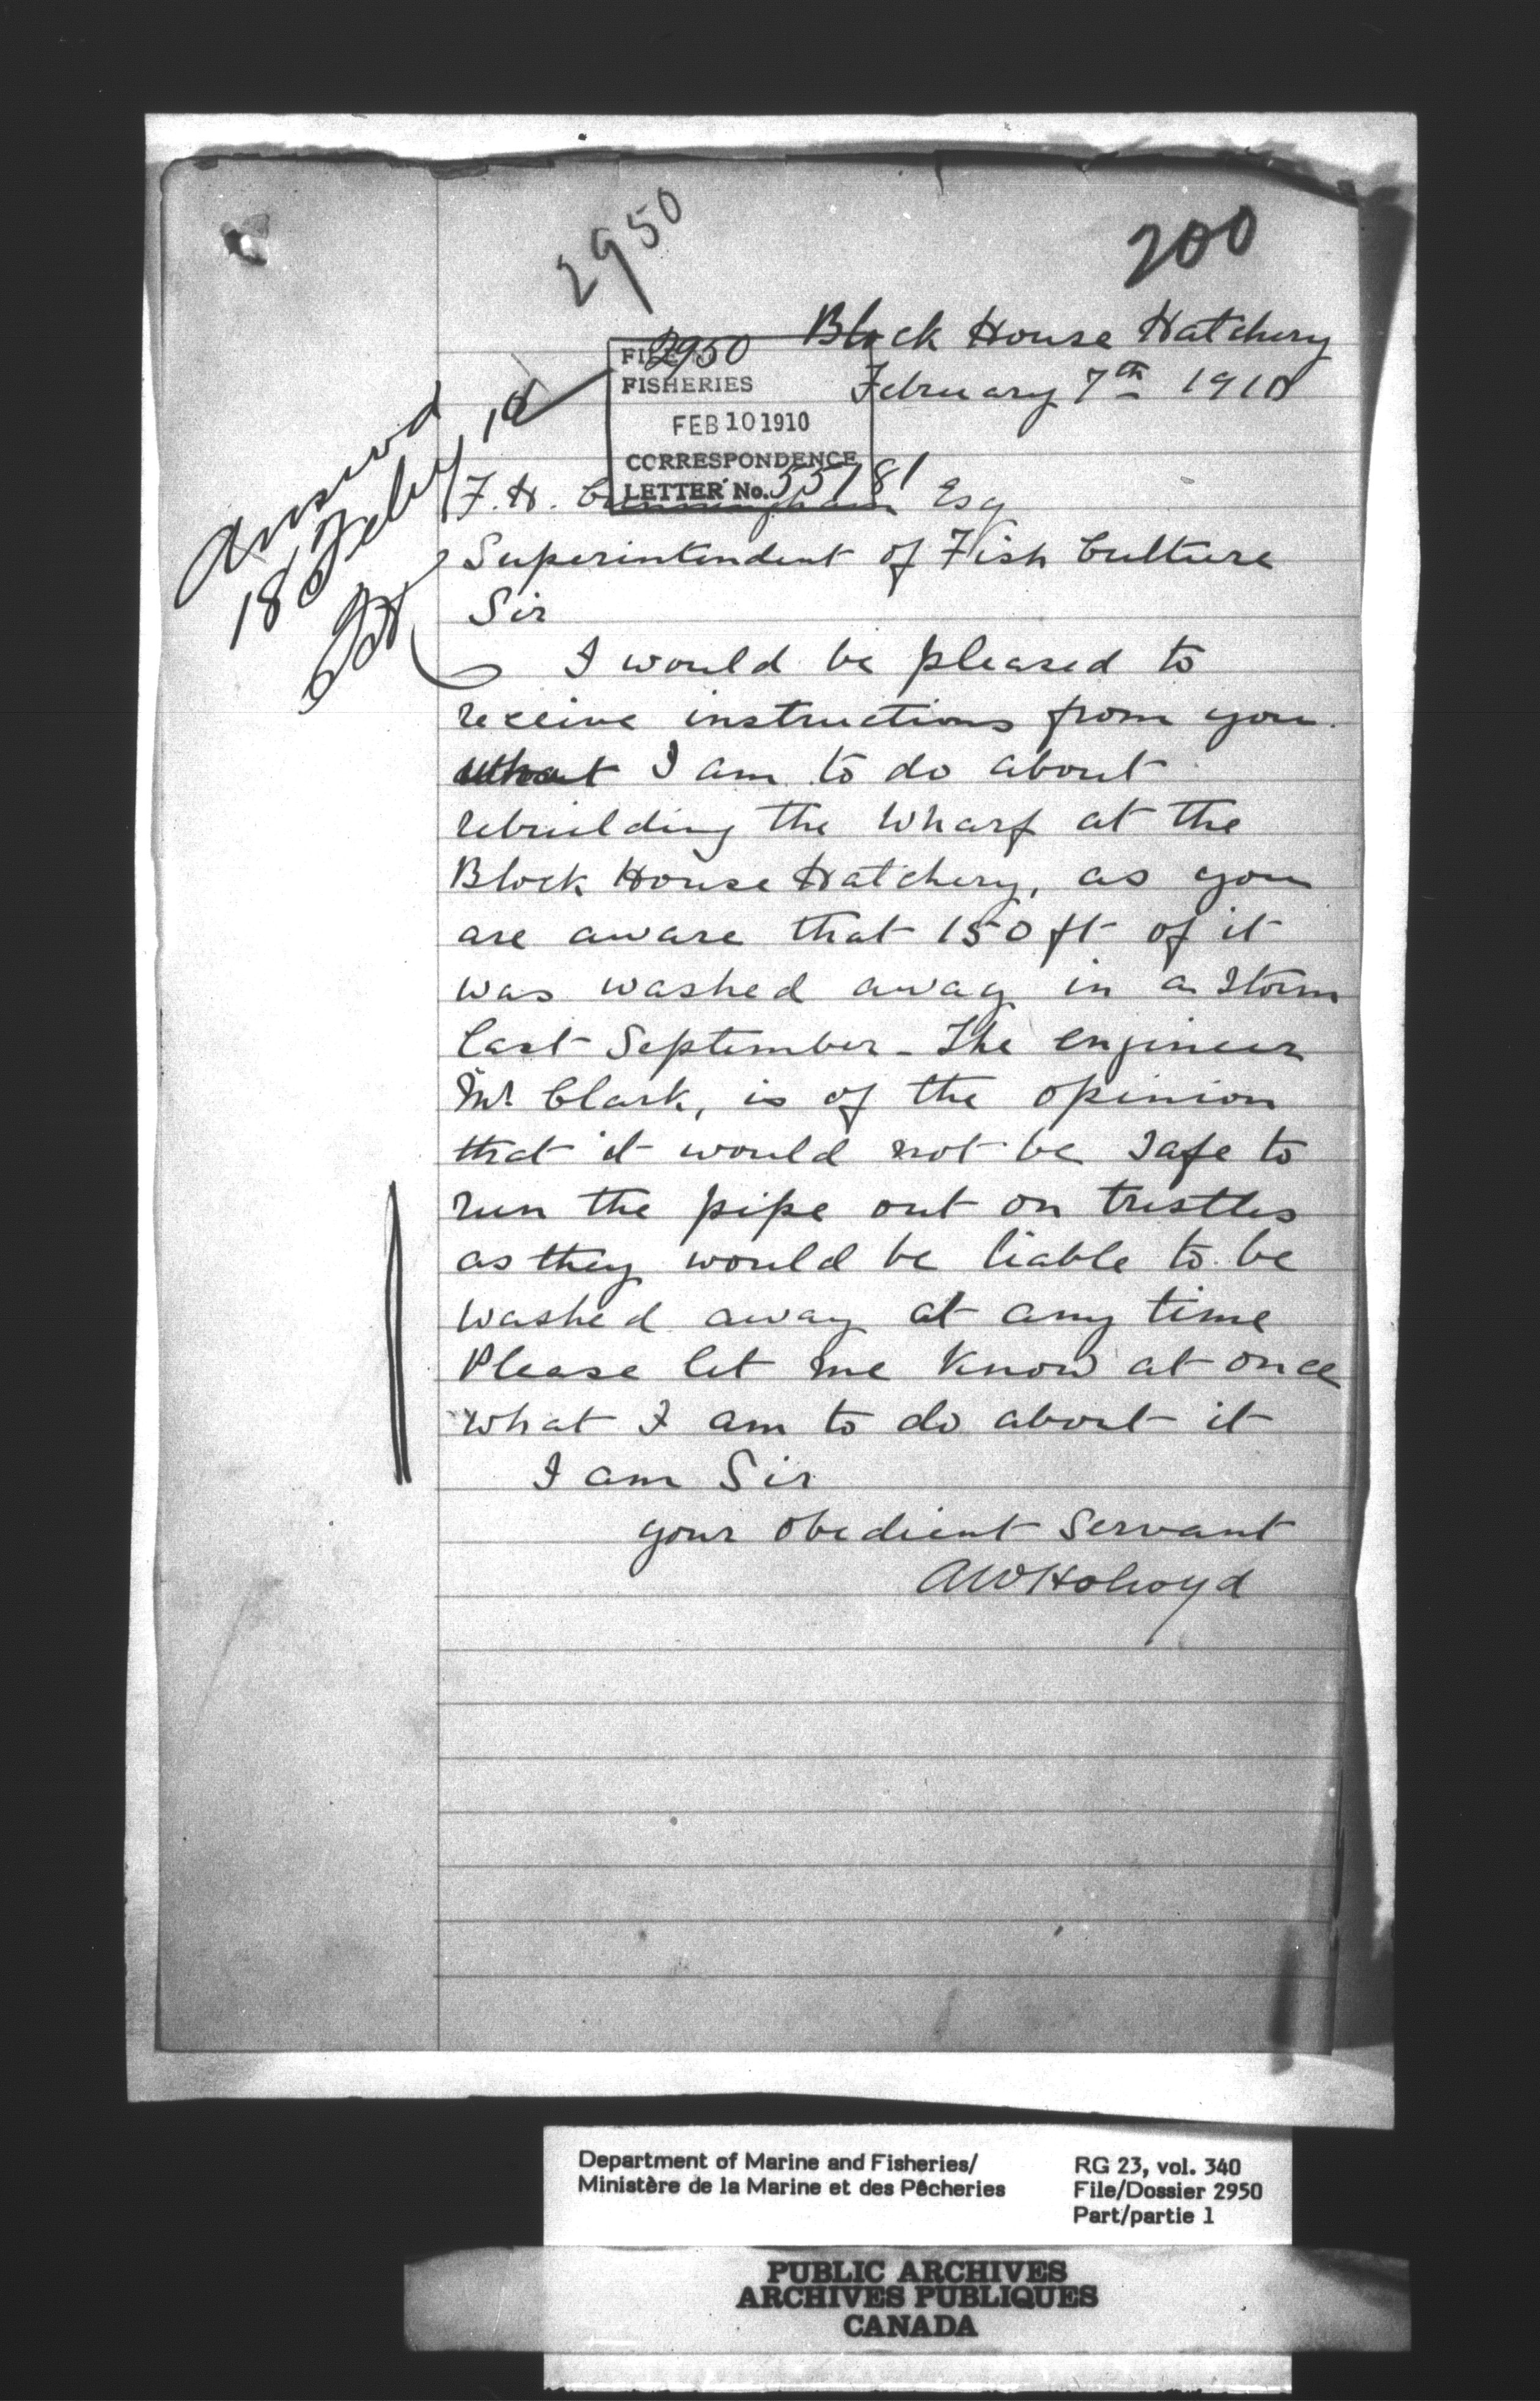 2950
200
Block House Hatchery
February 7th 1910
FILE No. 2950
FISHERIES
FEB 10 1910
CORRESPONDENCE
LETTER No. 55781
Answd
18 Feby, 10
F. H. Cunningham Esq
Superintendent of Fish Culture
Sir
I would be pleased to
receive instructions from you
what I am to do about
rebuilding the Wharf at the
Block House Hatchery, as you
are aware that 150 ft of it
was washed away in a storm
last September - The engineer
Mr Clark, is of the opinion
that it would not be safe to
run the pipe out on trestles
as they would be liable to be
washed away at any time
Please let me know at once
what I am to do about it
I am Sir
your obedient servant
AW Holroyd
Department of Marine and Fisheries/
Ministère de la Marine et des Pêcheries
RG 23, vol. 340
File/Dossier 2950
Part/partie 1
PUBLIC ARCHIVES
ARCHIVES PUBLIQUES
CANADA